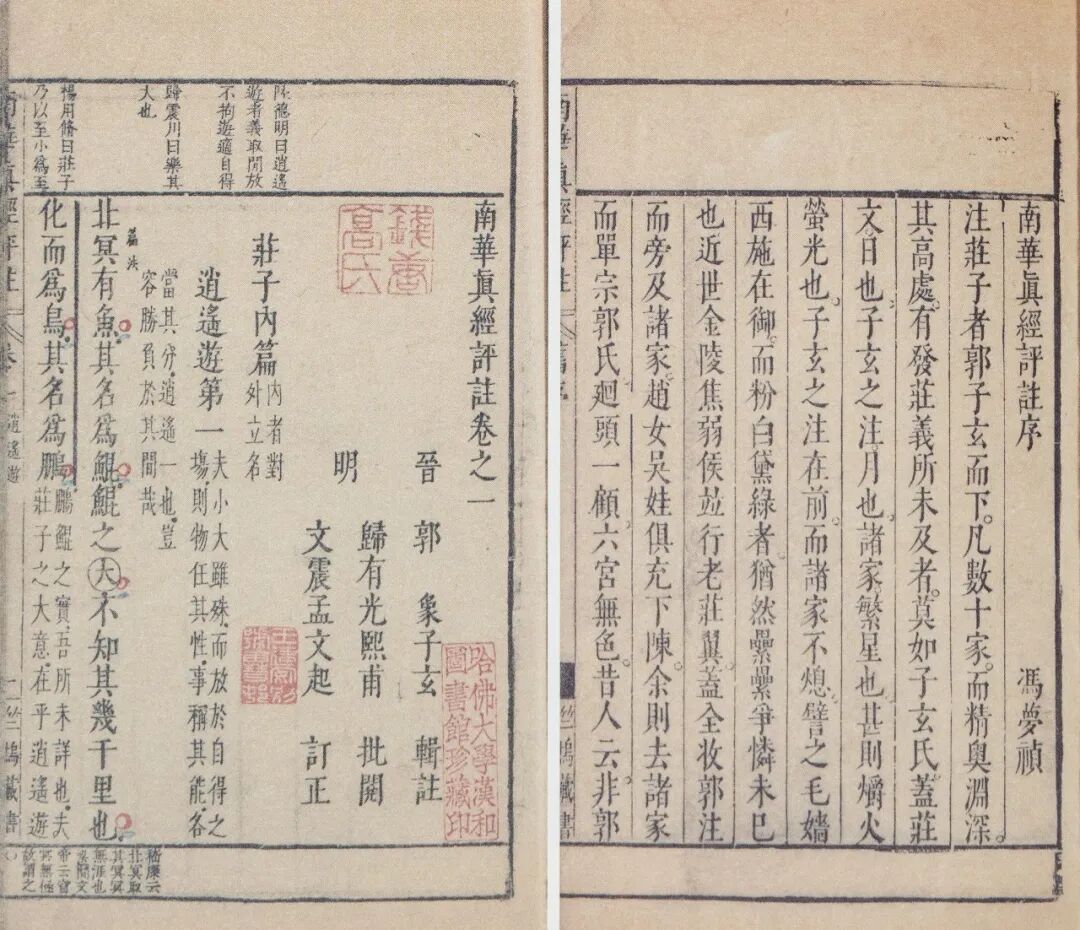 南華眞經評註序
馮夢禎
注莊子者郭子玄而下。凡數十家。而精奧淵深。
其高處。有發莊義所未及者。莫如子玄氏。蓋莊
文。日也。子玄之注。月也。諸家。繁星也。甚則爝火
螢光也。子玄之注在前。而諸家不熄。譬之毛嬙
西施在御。而粉白黛綠者。猶然纍纍爭憐未已
也。近世金陵焦弱侯並行老莊翼。蓋全收郭注
而旁及諸家。趙女吳娃俱充下陳。余則去諸家
而單宗郭氏。廻頭一顧。六宮無色。昔人云。非郭
陸德明曰逍遙
遊者義取閒放
不拘遊適自得
歸震川曰樂其
大也
楊用脩曰莊子
乃以至小爲至
南華眞經評註卷之一
晉 郭 象子玄 輯註
明 歸有光熙甫 批閱
文震孟文起 訂正
錢唐高氏
哈佛大學漢和圖書館珍藏印
莊子內篇
內者對
外立名
逍遙遊第一
夫小大雖殊。而放於自得之
塲。則物任其性。事稱其能。各
當其分。逍遙一也。豈
容勝負於其間哉
篇法
北冥有魚。其名爲鯤。鯤之大。不知其幾千里也。
化而爲鳥。其名爲鵬
鵬鯤之實。吾所未詳也。夫
莊子之大意。在乎逍遙遊
嵇康云
北冥取
其冥冥
無涯也
梁簡文
帝云窅
冥無極
故謂之
南華眞經評註
卷一 逍遙遊
一
竺塢藏書